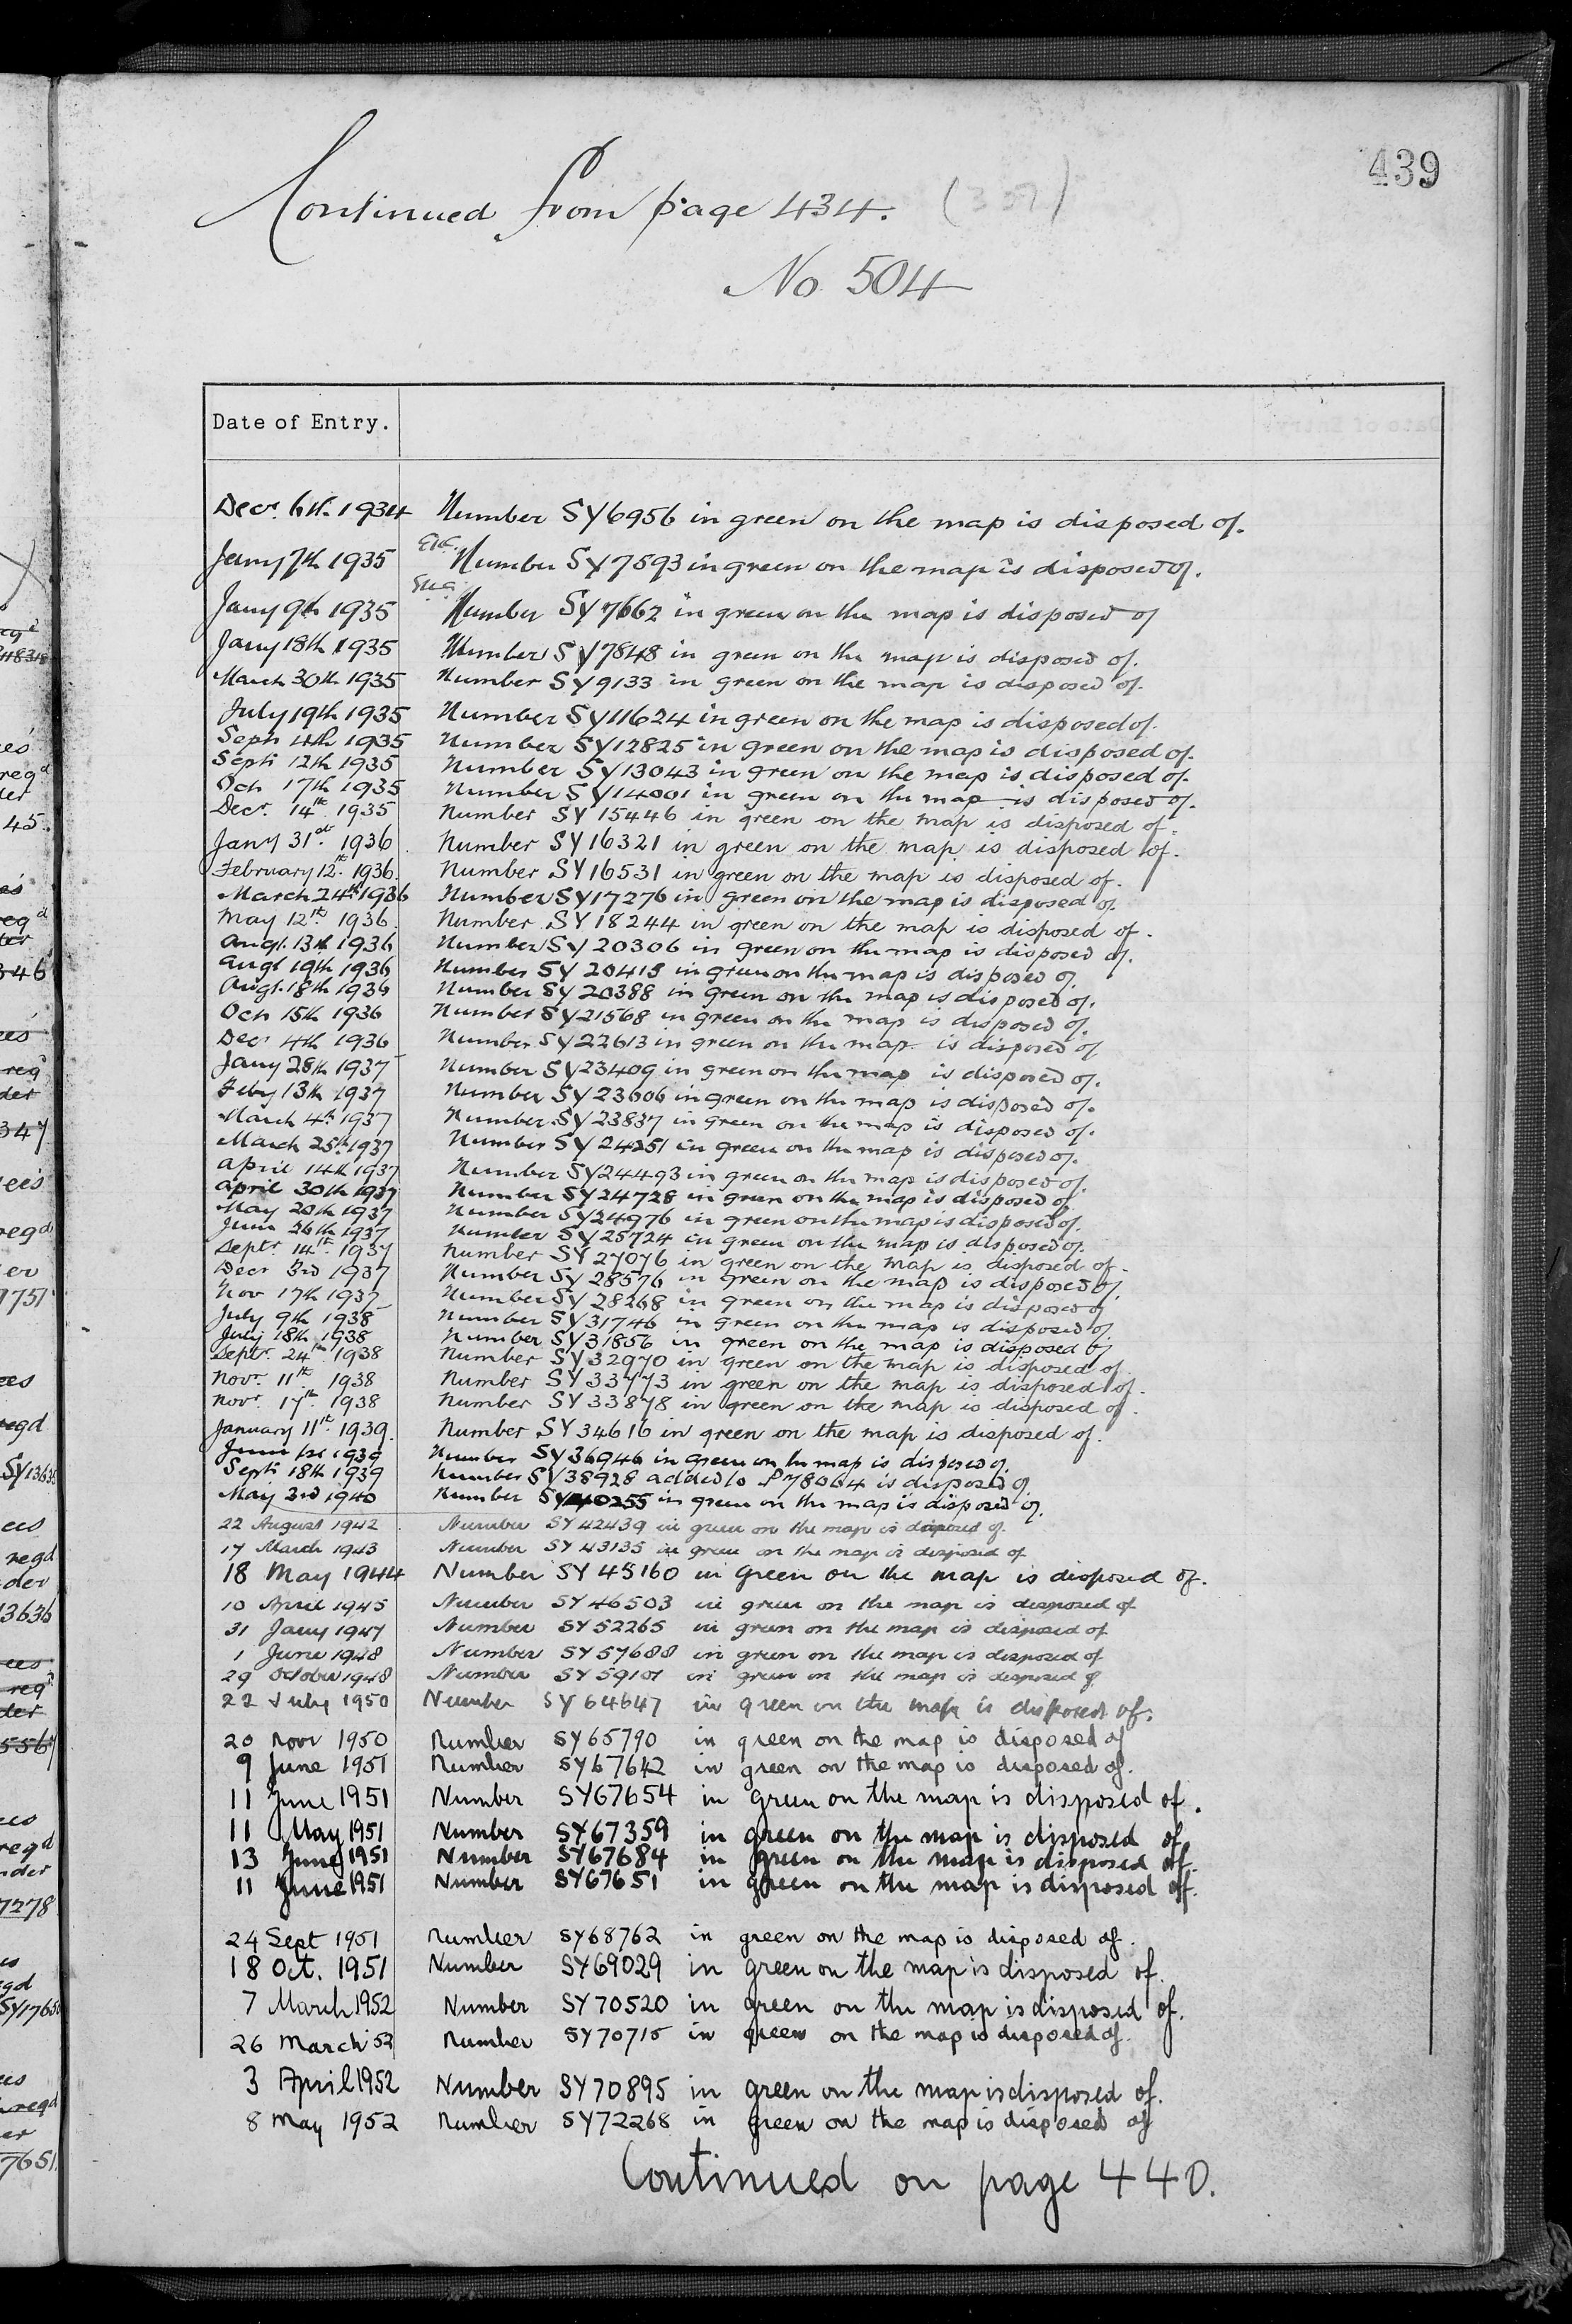 439
Continued from page 434. (357)
No 504
Date of Entry.
Decr. 6th. 1934 Number SY6956 in green on the map is disposed of.
Jany 7th 1935 Number SY7593 in green on the map is disposed of.
Jany 9th 1935 Number SY7662 in green on the map is disposed of
Jany 18th 1935 Number SY7848 in green on the map is disposed of.
March 30th 1935 Number SY9133 in green on the map is disposed of.
July 19th 1935 Number SY11624 in green on the map is disposed of.
Sept 4th 1935 Number SY12825 in green on the map is disposed of.
Sept 12th 1935 Number SY13043 in green on the map is disposed of.
Oct 17th 1935 Number SY14001 in green on the map is disposed of.
Decr. 14th 1935 Number SY15446 in green on the map is disposed of.
Jany 31st 1936 Number SY16321 in green on the map is disposed of.
February 12th 1936. Number SY16531 in green on the map is disposed of.
March 24th 1936 Number SY17276 in green on the map is disposed of.
May 12th 1936. Number SY18244 in green on the map is disposed of.
Augt. 13th 1936 Number SY20306 in green on the map is disposed of.
Augt 19th 1936 Number SY20415 in green on the map is disposed of.
Augt. 18th 1936 Number SY20388 in green on the map is disposed of.
Oct 15th 1936 Number SY21568 in green on the map is disposed of.
Decr 4th 1936 Number SY22613 in green on the map is disposed of
Jany 28th 1937 Number SY23409 in green on the map is disposed of.
Feby 13th 1937 Number SY23606 in green on the map is disposed of.
March 4th 1937 Number SY23837 in green on the map is disposed of.
March 25th 1937 Number SY24251 in green on the map is disposed of.
April 14th 1937 Number SY24493 in green on the map is disposed of.
April 30th 1937 Number SY24728 in green on the map is disposed of
May 20th 1937 Number SY24976 in green on the map is disposed of.
June 26th 1937 Number SY25724 in green on the map is disposed of.
Septr. 14th. 1937 Number SY27076 in green on the map is disposed of.
Decr 3rd 1937 Number SY28576 in green on the map is disposed of.
Nov 17th 1937 Number SY28268 in green on the map is disposed of
July 9th 1938 Number SY31746 in green on the map is disposed of.
July 18th 1938 Number SY31856 in green on the map is disposed of
Septr. 24th 1938 Number SY32970 in green on the map is disposed of.
Novr. 11th 1938 Number SY33773 in green on the map is disposed of.
Novr. 17th 1938 Number SY33878 in green on the map is disposed of.
January 11th 1939. Number SY34616 in green on the map is disposed of.
June 1st 1939 Number SY36946 in green on the map is disposed of.
Sept 18th 1939 Number SY38928 added to P78064 is disposed of.
May 3rd 1940 Number SY40255 in green on the map is disposed of.
22 August 1942 Number SY42439 in green on the map is disposed of.
17 March 1943 Number SY43135 in green on the map is disposed of
18 May 1944 Number SY45160 in green on the map is disposed of.
10 April 1945 Number SY46503 in green on the map is disposed of
31 Jany 1947 Number SY52265 in green on the map is disposed of
1 June 1948 Number SY57688 in green on the map is disposed of
29 October 1948 Number SY59101 in green on the map is disposed of
22 July 1950 Number SY64647 in green on the map is disposed of.
20 Novr 1950 Number SY65790 in green on the map is disposed of
9 June 1951 Number SY67642 in green on the map is disposed of.
11 June 1951 Number SY67654 in green on the map is disposed of.
11 May 1951 Number SY67359 in green on the map is disposed of.
13 June 1951 Number SY67684 in green on the map is disposed of.
11 June 1951 Number SY67651 in green on the map is disposed of.
24 Sept 1951 Number SY68762 in green on the map is disposed of.
18 Oct. 1951 Number SY69029 in green on the map is disposed of.
7 March 1952 Number SY70520 in green on the map is disposed of.
26 March '52 Number SY70715 in green on the map is disposed of.
3 April 1952 Number SY70895 in green on the map is disposed of.
8 May 1952 Number SY72268 in green on the map is disposed of
Continued on page 440.